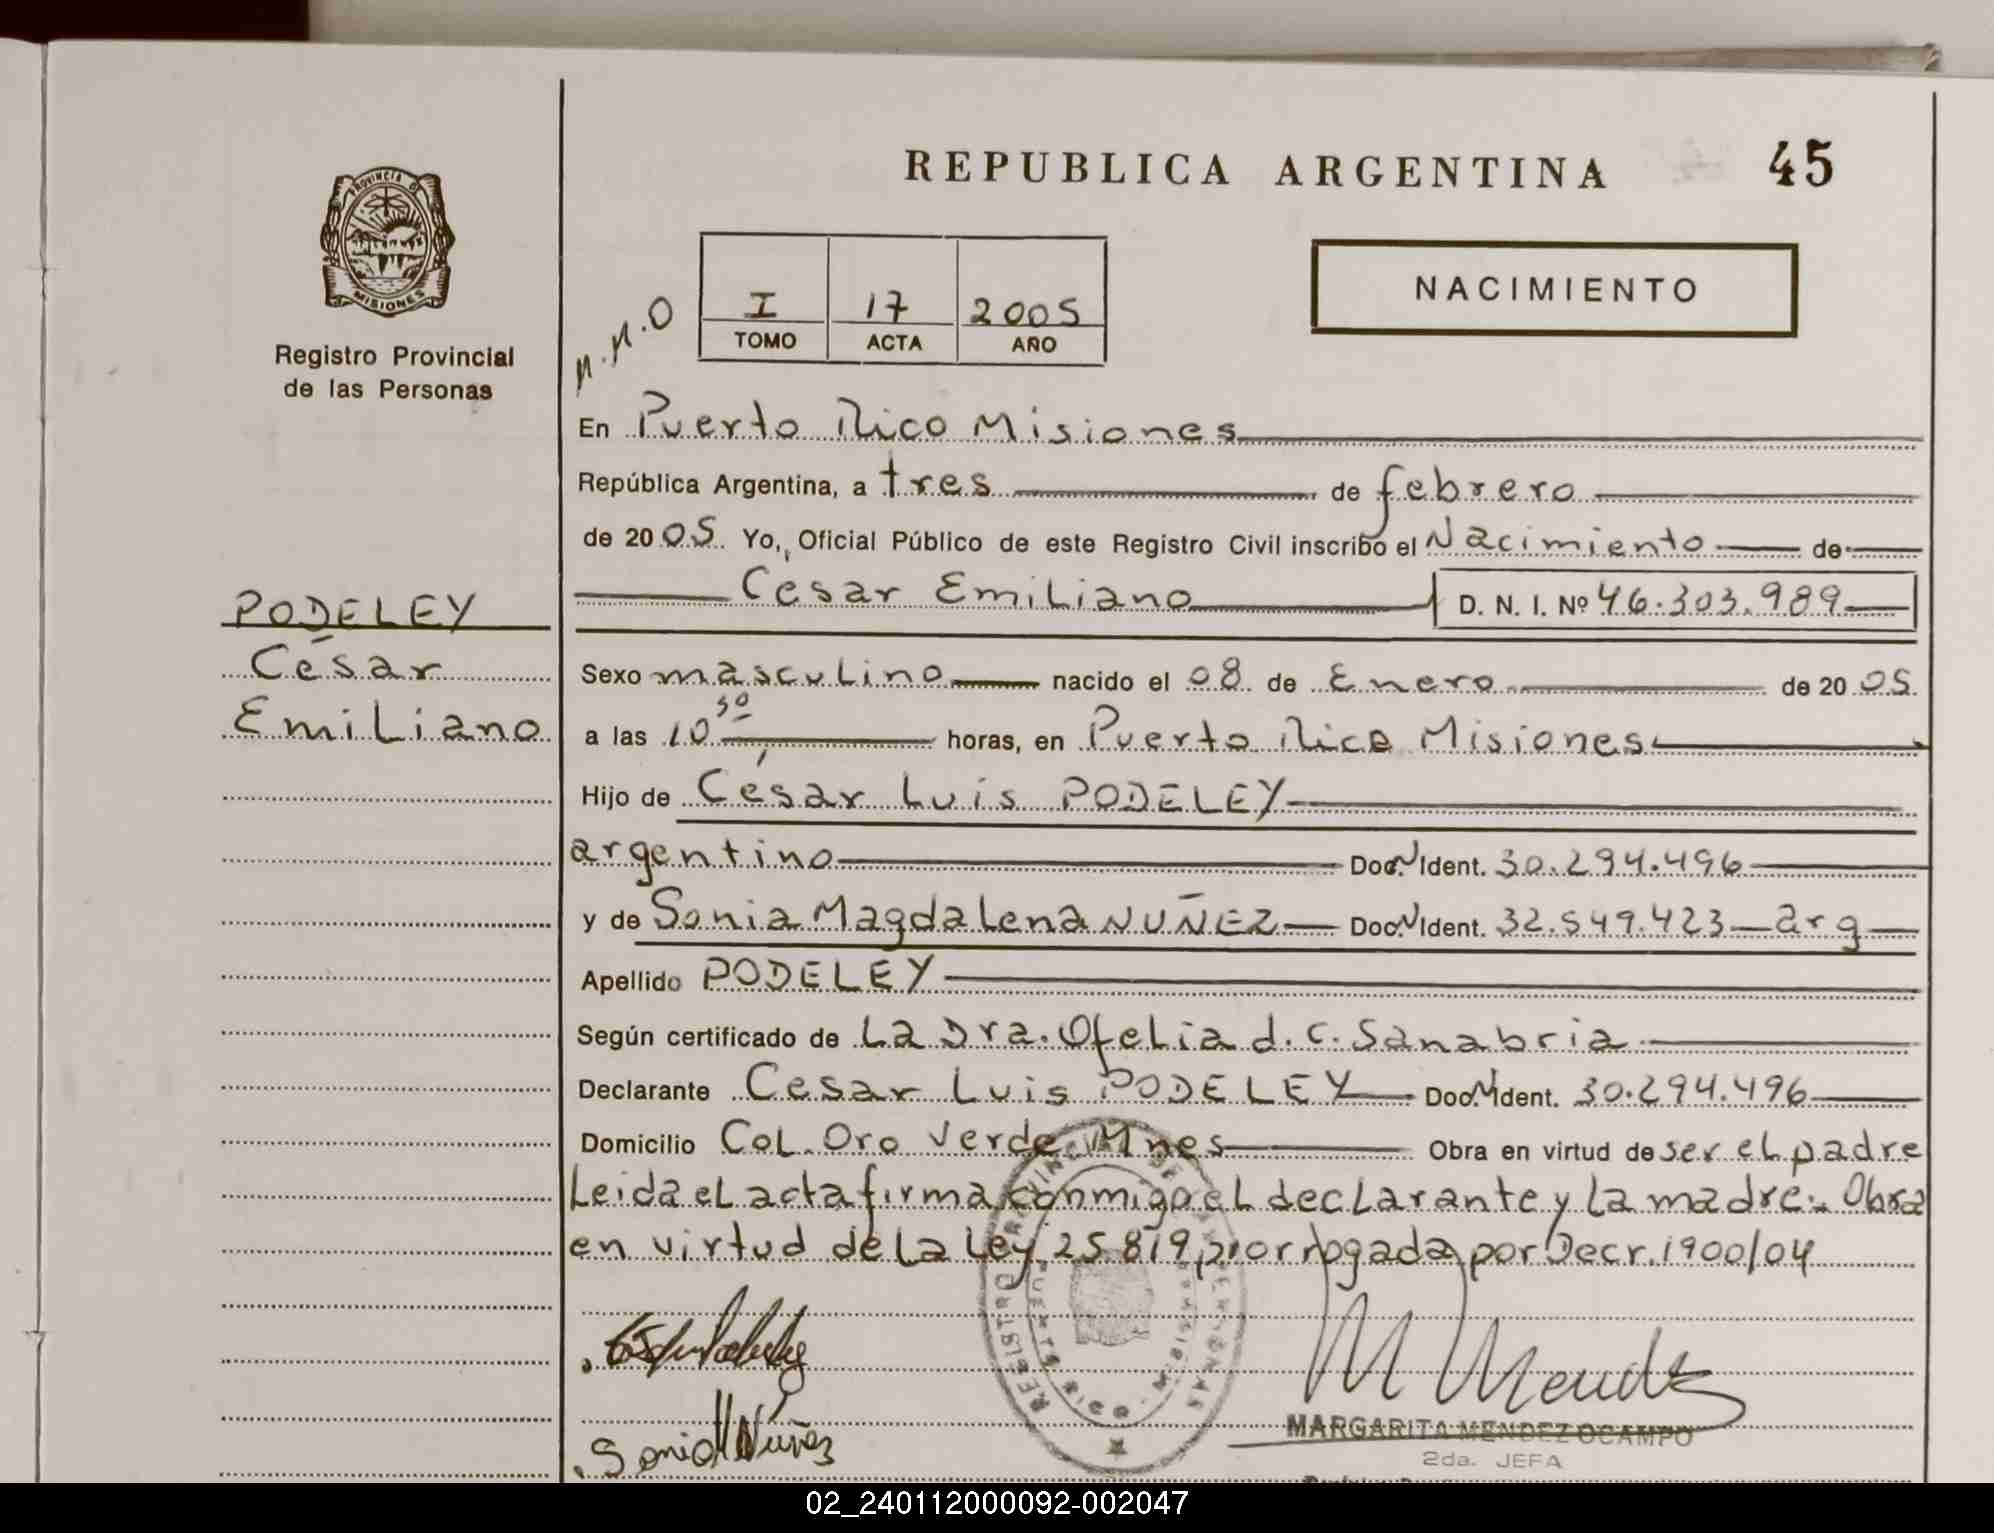 REPUBLICA ARGENTINA 45
PROVINCIA DE
MISIONES
Registro Provincial
de las Personas
NACIMIENTO
I 17 2005
TOMO ACTA AÑO
En Puerto Rico Misiones
República Argentina, a tres de febrero
de 2005. Yo, Oficial Público de este Registro Civil inscribo el Nacimiento de
César Emiliano D. N. I. Nº 46.303.989
PODELEY
César
Emiliano
Sexo masculino nacido el 08 de Enero de 2005
a las 10 30 horas, en Puerto Rico Misiones
Hijo de César Luis PODELEY
argentino Doc. N Ident. 30.294.496
y de Sonia Magdalena NUÑEZ Doc. N Ident. 32.549.423 arg
Apellido PODELEY
Según certificado de La Dra. Ofelia d. C. Sanabria
Declarante Cesar Luis PODELEY Doc. N Ident. 30.294.496
Domicilio Col. Oro Verde Mnes Obra en virtud de ser el padre
Leida el acta firma conmigo el declarante y la madre: Obra
en virtud de la Ley 25819, prorrogada por Decr. 1900/04
REGISTRO PROVINCIAL DE LAS PERSONAS
PUERTO RICO MISIONES
Sonia Nuñez
M Mendez
MARGARITA MENDEZ OCAMPO
2da. JEFA
02_240112000092-002047